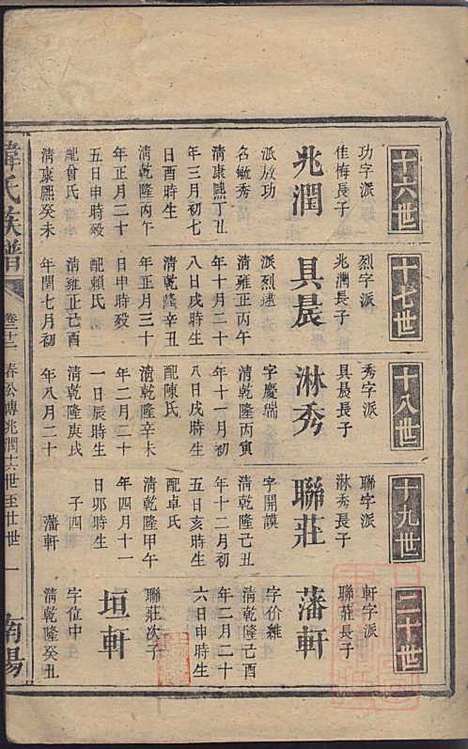 十六世
功字派
佳梅長子
兆潤
派放功
名敏秀
清康熙丁丑
年三月初七
日酉時生
清乾隆丙午
年正月二十
五日申時殁
配曾氏
清康熙癸未
年閏七月初
十七世
烈字派
兆潤長子
具晨
派烈逑
清雍正丙午
年十月二十
八日戌時生
清乾隆辛丑
年正月三十
日申時殁
配賴氏
清雍正己酉
年八月二十
十八世
秀字派
具晨長子
淋秀
字慶瑞
清乾隆丙寅
年十一月初
八日戌時生
配陳氏
清乾隆辛未
年二月二十
一日辰時生
清乾隆庚戌
十九世
聯字派
淋秀長子
聯莊
字開謨
清乾隆己酉
年十二月初
五日亥時生
配卓氏
清乾隆甲午
年四月十一
日卯時生
子四
藩軒
二十世
軒字派
聯莊長子
藩軒
字价維
清乾隆己酉
年二月二十
六日申時生
聯莊次子
垣軒
字位中
清乾隆癸丑
氏族譜
春公傳兆潤十六世至廿世
一
南陽